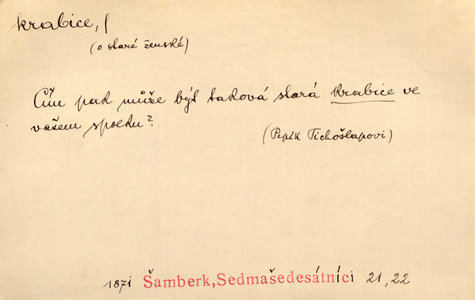 krabice, f
(o staré ženské)
Čím pak může být taková stará krabice ve
vašem spolku?
(Pepík Tichošlapovi)
1871 Šamberk, Sedmašedesátníci 21, 22